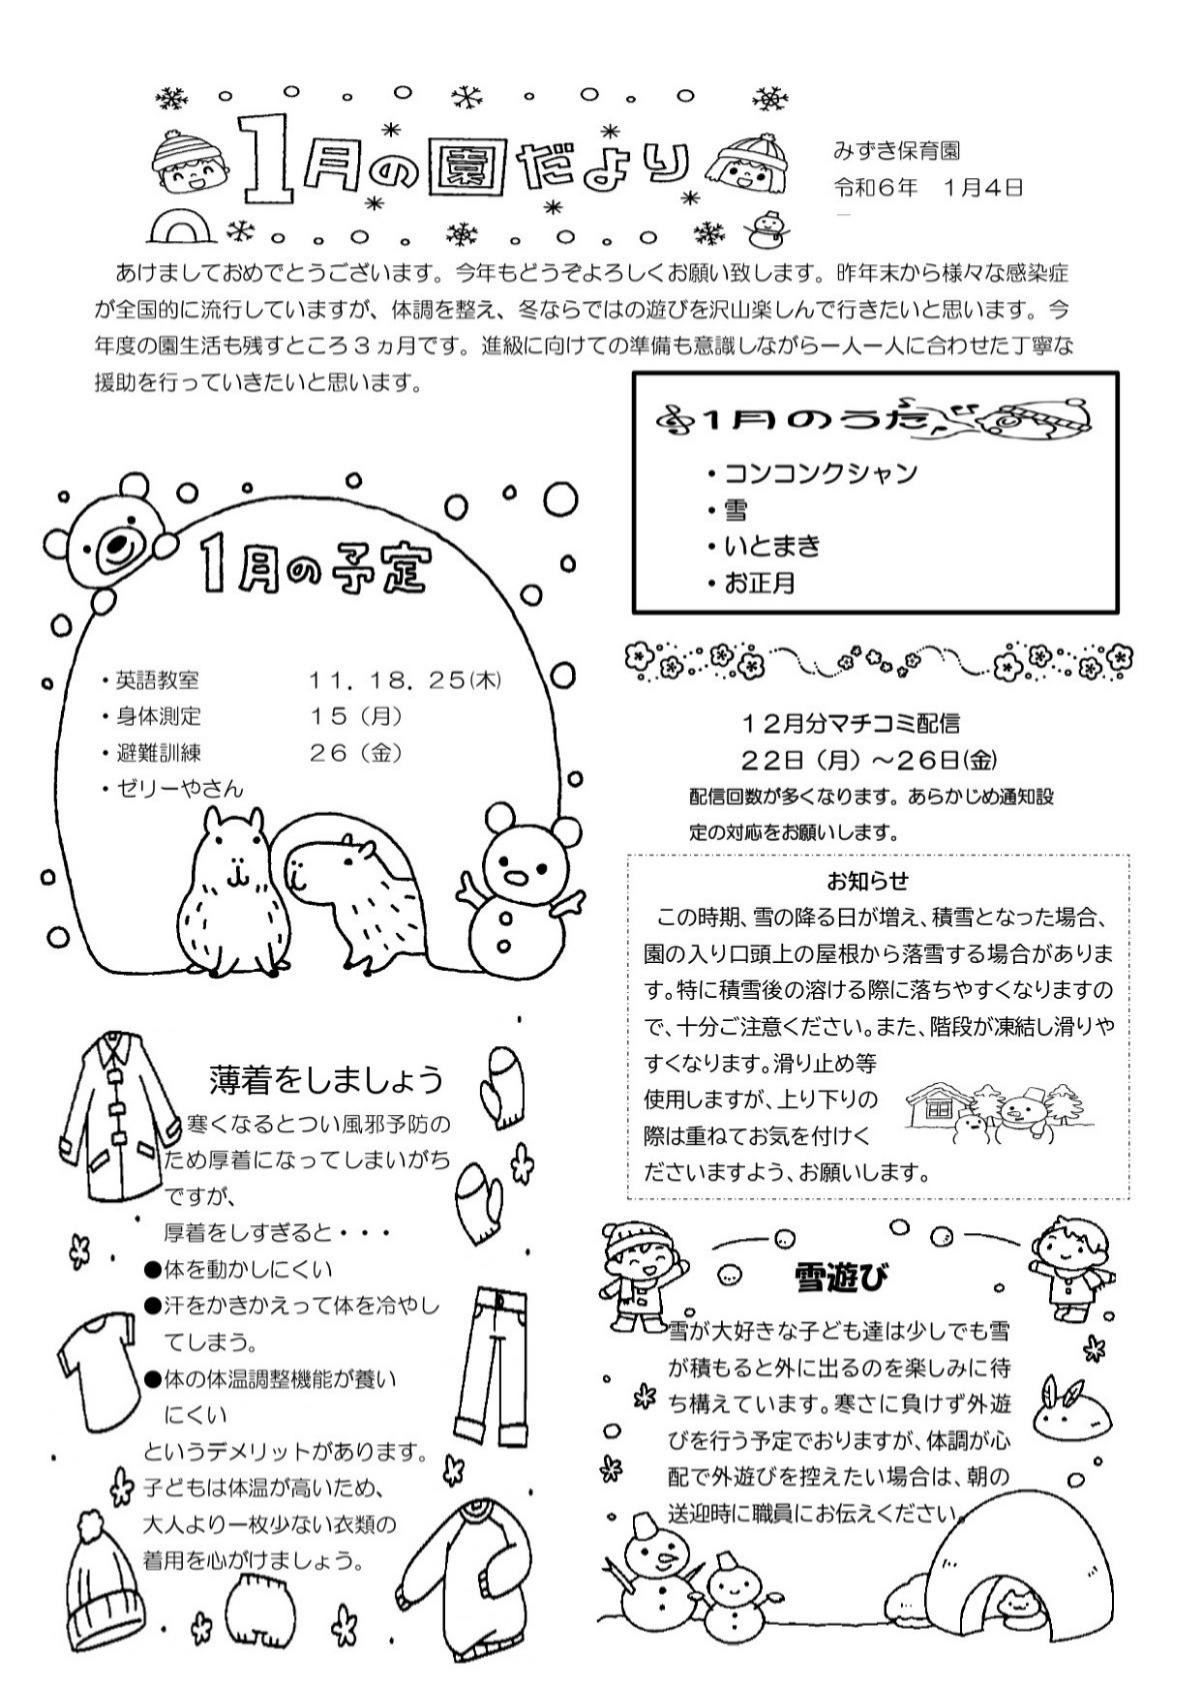 1月の園だより
みずき保育園
令和６年　１月４日
あけましておめでとうございます。今年もどうぞよろしくお願い致します。昨年末から様々な感染症
が全国的に流行していますが、体調を整え、冬ならではの遊びを沢山楽しんで行きたいと思います。今
年度の園生活も残すところ３ヵ月です。進級に向けての準備も意識しながら一人一人に合わせた丁寧な
援助を行っていきたいと思います。
1月のうた
・コンコンクシャン
・雪
・いとまき
・お正月
1月の予定
・英語教室　１１．１８．２５(木)
・身体測定　１５（月）
・避難訓練　２６（金）
・ゼリーやさん
１２月分マチコミ配信
２２日（月）～２６日(金)
配信回数が多くなります。あらかじめ通知設
定の対応をお願いします。
お知らせ
この時期、雪の降る日が増え、積雪となった場合、
園の入り口頭上の屋根から落雪する場合がありま
す。特に積雪後の溶ける際に落ちやすくなりますの
で、十分ご注意ください。また、階段が凍結し滑りや
すくなります。滑り止め等
使用しますが、上り下りの
際は重ねてお気を付けく
ださいますよう、お願いします。
薄着をしましょう
寒くなるとつい風邪予防の
ため厚着になってしまいがち
ですが、
厚着をしすぎると・・・
●体を動かしにくい
●汗をかきかえって体を冷やし
てしまう。
●体の体温調整機能が養い
にくい
というデメリットがあります。
子どもは体温が高いため、
大人より一枚少ない衣類の
着用を心がけましょう。
雪遊び
雪が大好きな子ども達は少しでも雪
が積もると外に出るのを楽しみに待
ち構えています。寒さに負けず外遊
びを行う予定でおりますが、体調が心
配で外遊びを控えたい場合は、朝の
送迎時に職員にお伝えください。